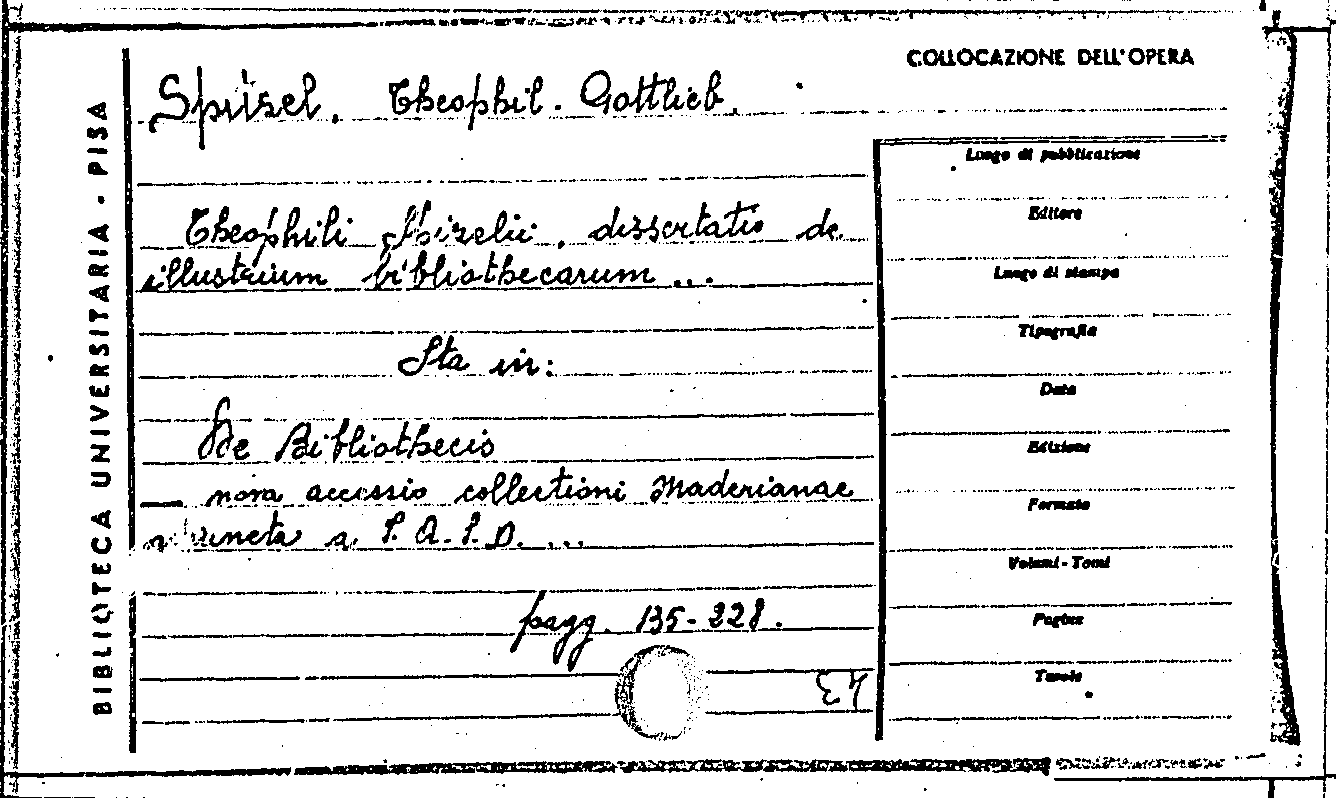 COLLOCAZIONE DELL'OPERA
BIBLIOTECA UNIVERSITARIA - PISA
Spizel, Theophil. Gottlieb.
Theophili Spizelii, dissertatio de
illustrium bibliothecarum...
Sta in:
De Bibliothecis
— nova accessio collectioni Maderianae
a P. A. S. D. ...
pagg. 135-228.
Luogo di pubblicazione
Editore
Luogo di stampa
Tipografia
Data
Edizione
Formato
Volumi - Tomi
Pagine
Tavole